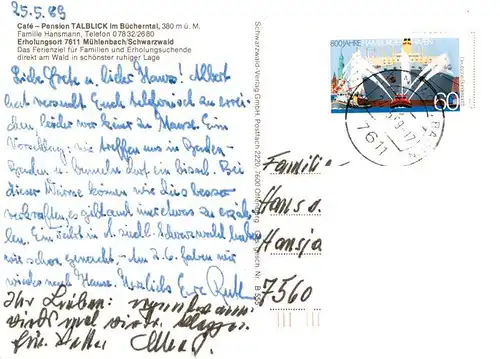 25.5.89
Café – Pension TALBLICK Im Büchertal, 380 m ü. M.
Familie Hansmann, Telefon 07832/2680
Erholungsort 7611 Mühlenbach/Schwarzwald
Das Ferienziel für Familien und Erholungsuchende
direkt am Wald in schönster ruhiger Lage
Liebe Grete u. lieber Hans! Albert
hat versucht Euch telefonisch zu errei-
chen, leider war keiner zu Hause. Ein
Vorschlag: wir treffen uns in Baden-
Baden u. bummeln dort ein bissel. Bei
dieser Wärme können wir dies besser
verkraften, es gibt immer etwas zu erzäh-
len. Eine Fahrt in d. südl. Schwarzwald haben
wir schon gemacht, – den 3.6. fahren wir
wieder nach Hause. Herzlichst Eure Ruth
Ihr Lieben:
wird
für
Schwarzwald-Verlag GmbH, Postfach 2220, 7600 Offenburg Ges. gesch. Nr. B 555
800 JAHRE HAMBURGER HAFEN
60
Deutsche Bundespost
7611
Familie
Hans u.
Hansja
7560